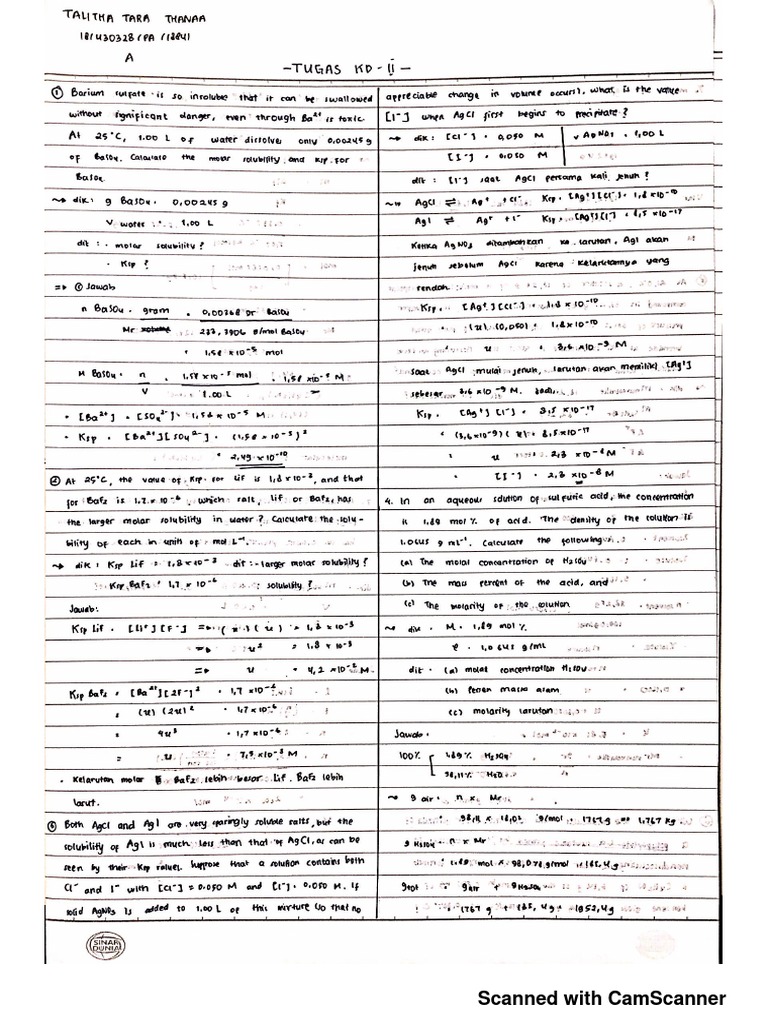 TALITHA TARA THANAA
18/430328/PA/18841
A
-TUGAS KD-II-
① Barium sulfate is so insoluble that it can be swallowed
without significant danger, even through Ba²⁺ is toxic.
At 25°C, 1.00 L of water dissolves only 0,00245 g
of BaSO₄. Calculate the molar solubility and Ksp for
BaSO₄
~> dik: g BaSO₄ = 0,00245 g
V water = 1,00 L
dit: - molar solubility?
- Ksp?
=> Jawab
n BaSO₄ = gram = 0,00368 gr BaSO₄
Mr 233,3906 g/mol BaSO₄
= 1,58 x10⁻⁵ mol
M BaSO₄ = n = 1,58 x10⁻⁵ mol = 1,58 x10⁻⁵ M
V 1.00 L
• [Ba²⁺] = [SO₄²⁻] = 1,58 x 10⁻⁵ M
• Ksp = [Ba²⁺][SO₄²⁻] = (1,58 x 10⁻⁵)²
= 2,49 x 10⁻¹⁰
② At 25°C, the value of Ksp for LiF is 1,8 x 10⁻³, and that
for BaF₂ is 1.7 x 10⁻⁶ which salt, LiF or BaF₂, has
the larger molar solubility in water? Calculate the solu-
bility of each in unit of mol L⁻¹.
~> dik: Ksp LiF = 1,8 x 10⁻³ dit: - larger molar solubility?
Ksp BaF₂ = 1,7 x 10⁻⁶ solubility?
Jawab:
Ksp LiF = [Li⁺][F⁻] => (x)(x) = 1,8 x 10⁻³
=> x² = 1,8 x 10⁻³
=> x = 4,2 x 10⁻² M
Ksp BaF₂ = [Ba²⁺][2F⁻]² = 1,7 x 10⁻⁶
= (x)(2x)² = 1,7 x 10⁻⁶
= 4x³ = 1,7 x 10⁻⁶
= x = 7,5 x 10⁻³ M
• Kelarutan molar BaF₂ lebih besar LiF. BaF₂ lebih
larut.
③ Both AgCl and AgI are very sparingly soluble salts, but the
solubility of AgI is much less than that of AgCl, as can be
seen by their Ksp values. Suppose that a solution contains both
Cl⁻ and I⁻ with [Cl⁻] = 0.050 M and [I⁻] = 0.050 M. If
solid AgNO₃ is added to 1.00 L of this mixture (so that no
appreciable change in volume occurs), what is the value
[I⁻] when AgCl first begins to precipitate?
~> dik: [Cl⁻] = 0,050 M V AgNO₃ = 1,00 L
[I⁻] = 0.050 M
dit: [I⁻] saat AgCl pertama kali jenuh?
~> AgCl ⇌ Ag⁺ + Cl⁻ Ksp = [Ag⁺][Cl⁻] = 1,8 x 10⁻¹⁰
AgI ⇌ Ag⁺ + I⁻ Ksp = [Ag⁺][I⁻] = 8,5 x 10⁻¹⁷
Ketika AgNO₃ ditambahkan ke larutan, AgI akan
jenuh sebelum AgCl karena kelarutannya yang
rendah
Ksp = [Ag⁺][Cl⁻] = 1,8 x 10⁻¹⁰
(x)(0,050) = 1,8 x 10⁻¹⁰
x = 3,6 x 10⁻⁹ M
saat AgCl mulai jenuh, larutan akan memiliki [Ag⁺]
sebesar 3,6 x 10⁻⁹ M. Jadi
Ksp = [Ag⁺][I⁻] = 8,5 x 10⁻¹⁷
(3,6 x 10⁻⁹)(x) = 8,5 x 10⁻¹⁷
x = 2,3 x 10⁻⁸ M
[I⁻] = 2,3 x 10⁻⁸ M
4. In an aqueous solution of sulfuric acid, the concentration
is 1.89 mol % of acid. The density of the solution is
1.0645 g mL⁻¹. Calculate the following
(a) The molal concentration of H₂SO₄
(b) The mass percent of the acid, and
(c) The molarity of the solution
~> dik = M = 1,89 mol %
ρ = 1,0645 g/mL
dit = (a) molal concentration H₂SO₄
(b) Persen massa asam
(c) molarity larutan
Jawab =
100% 1,89% H₂SO₄
98,11% H₂O
~> g air = n x Mr
= 98,11 x 18,02 g/mol = 1767 g => 1,767 kg
g H₂SO₄ = n x Mr
= 1,89 mol x 98,078 g/mol = 185,4 g
g tot = g air + g H₂SO₄
= 1767 g + 185,4 g = 1952,4 g
SINAR
DUNIA
Scanned with CamScanner